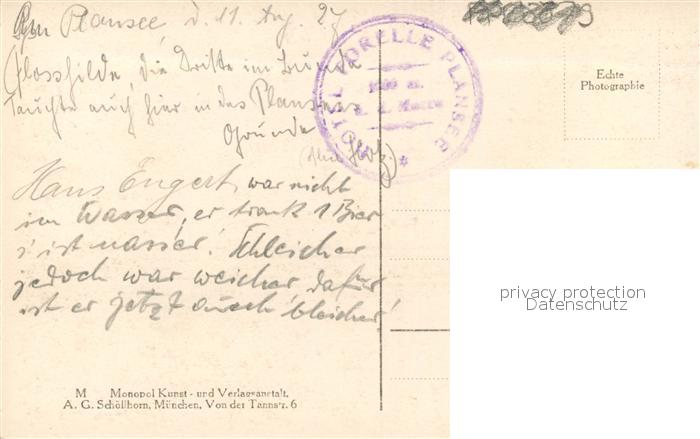 Am Plansee, d. 11. Aug. 27
Flosshilde, die Dritte im Bunde
Tauchte auch hier in des Plansees
Grunde
Hans Engert, war nicht
im Wasser, er trank 1 Bier
s'ist nasser! Schleicher
jedoch war weicher, dafür
ist er jetzt auch bleicher!
HOTEL FORELLE PLANSEE
ü. d. Meere
Echte
Photographie
privacy protection
Datenschutz
M Monopol Kunst- und Verlagsanstalt,
A. G. Schöllhorn, München, Von der Tannstr. 6